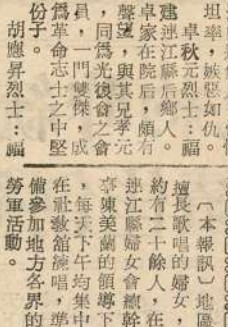 坦率，嫉惡如仇。
卓秋元烈士：福
建連江縣后鄉人。
卓家在院后，頗有
聲望，與其兄孝元
，同爲光復會之會
員，一門雙傑，成
爲革命志士之中堅
份子。
胡應昇烈士：福
〔本報訊〕地區
擅長歌唱的婦女，
約有二十餘人，在
連江縣婦女會總幹
事陳美蘭的領導下
，每天下午均集中
在社敎館練唱，準
備參加地方各界的
勞軍活動。